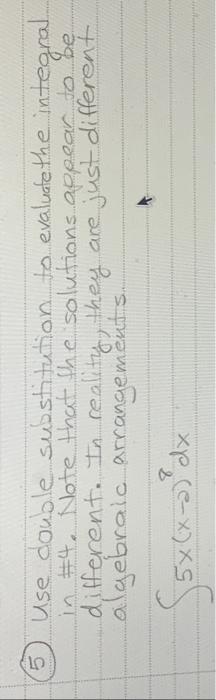 ⑤ Use double substitution to evaluate the integral
in #4. Note that the solutions appear to be
different. In reality, they are just different
algebraic arrangements.
∫5x(x-2)⁸dx